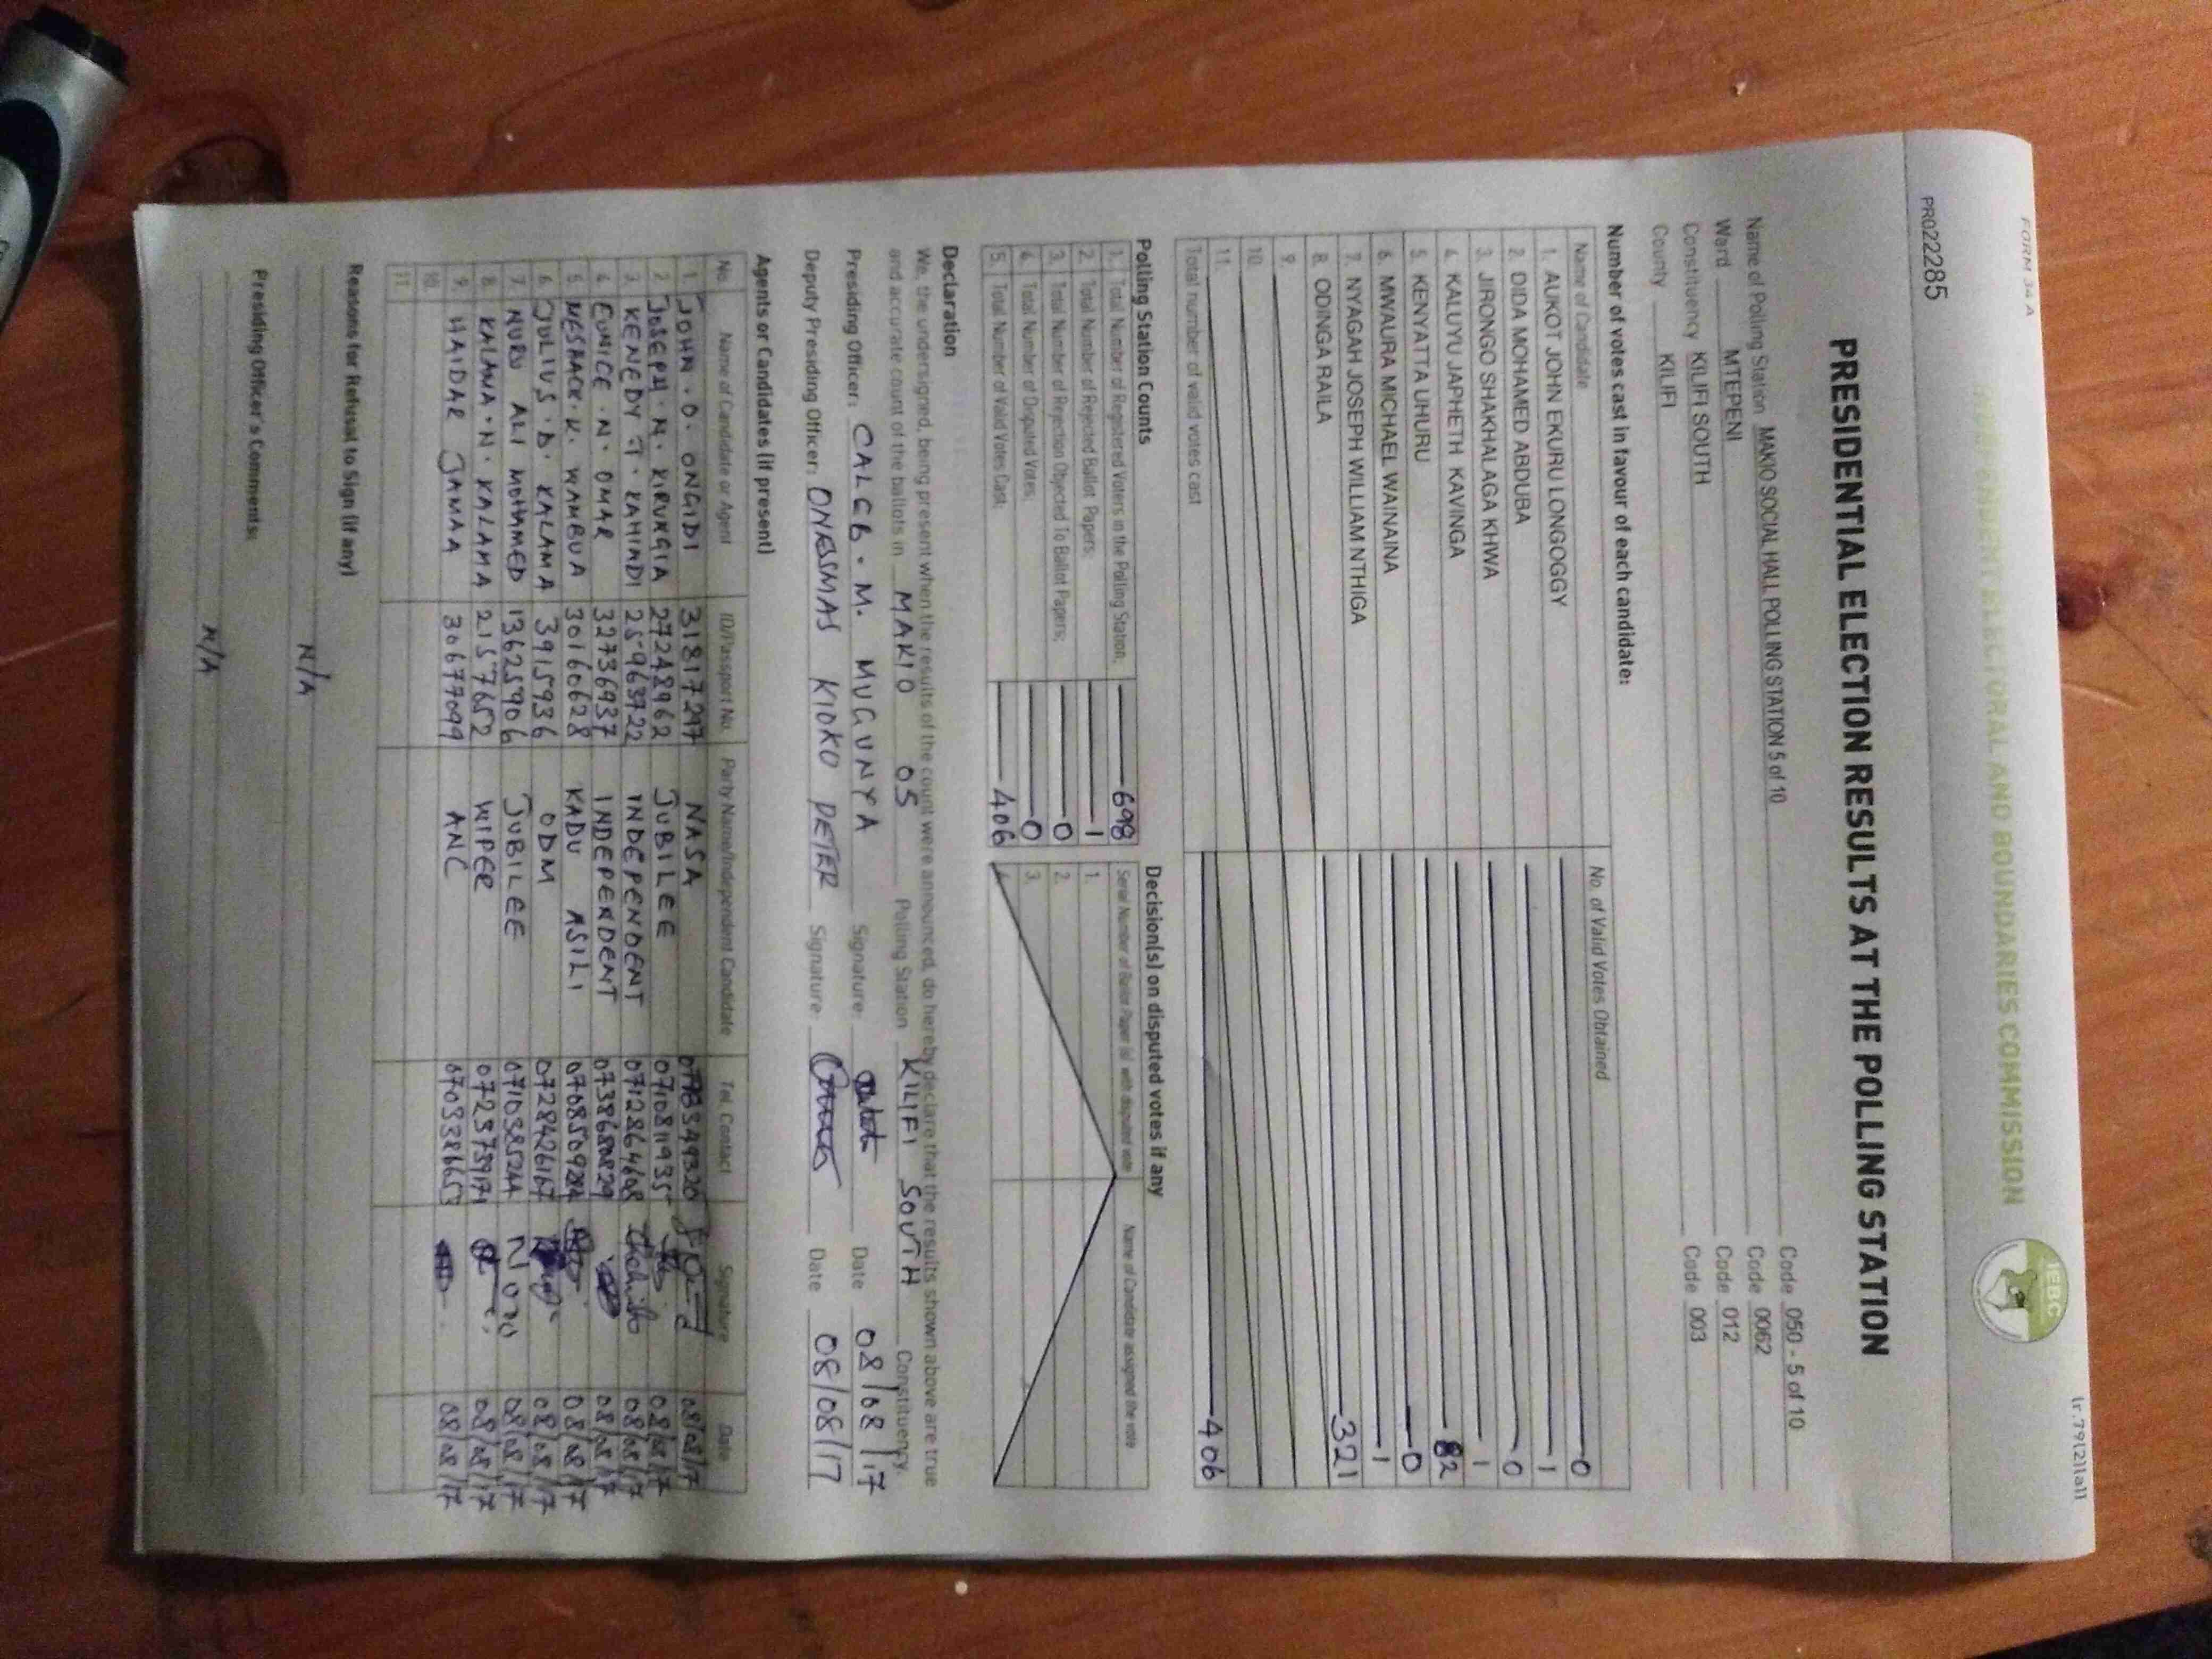 FORM 34 A
(r.79(2)(a))
INDEPENDENT ELECTORAL AND BOUNDARIES COMMISSION
IEBC
PR022285
PRESIDENTIAL ELECTION RESULTS AT THE POLLING STATION
Name of Polling Station MAKIO SOCIAL HALL POLLING STATION 5 of 10 Code 050 - 5 of 10
Ward MTEPENI Code 0062
Constituency KILIFI SOUTH Code 012
County KILIFI Code 003
Number of votes cast in favour of each candidate:
Name of Candidate No. of Valid Votes Obtained
1. AUKOT JOHN EKURU LONGOGGY 0
2. DIDA MOHAMED ABDUBA 1
3. JIRONGO SHAKHALAGA KHWA 0
4. KALUYU JAPHETH KAVINGA 1
5. KENYATTA UHURU 82
6. MWAURA MICHAEL WAINAINA 0
7. NYAGAH JOSEPH WILLIAM NTHIGA 1
8. ODINGA RAILA 321
9.
10.
11.
Total number of valid votes cast 406
Polling Station Counts
1. Total Number of Registered Voters in the Polling Station; 698
2. Total Number of Rejected Ballot Papers; 1
3. Total Number of Rejection Objected To Ballot Papers; 0
4. Total Number of Disputed Votes; 0
5. Total Number of Valid Votes Cast; 406
Decision(s) on disputed votes if any
Serial Number of Ballot Paper (s) with disputed vote Name of Candidate assigned the vote
1.
2.
3.
4.
Declaration
We, the undersigned, being present when the results of the count were announced, do hereby declare that the results shown above are true
and accurate count of the ballots in MAKIO 05 Polling Station KILIFI SOUTH Constituency.
Presiding Officer: CALEB . M. MUGUNYA Signature: Date 08/08/17
Deputy Presiding Officer: ONESSMAS KIOKO PETER Signature: Date 08/08/17
Agents or Candidates (if present)
No. Name of Candidate or Agent ID/Passport No. Party Name/Independent Candidate Tel. Contact Signature Date
1. JOHN . O. ONGIDI 31817297 NASA 08/08/17
2. JOSEPH . N. KIRUKGIA 27248962 JUBILEE 0710811935 08/08/17
3. KENEDY T. KAHINDI 25963722 INDEPENDENT 0712864608 08/08/17
4. EUNICE . N. OMAR 32736937 INDEPENDENT 0738680829 08/08/17
5. MESHACK. K. WAMBUA 30160628 KADU ASILI 0708509284 08/08/17
6. JULIUS . D. KALAMA 3915936 ODM 0728426167 08/08/17
7. NURU ALI MOHAMED 13625906 JUBILEE 0710385244 08/08/17
8. KALAMA . N. KALAMA 2157652 WIPER 0723739171 08/08/17
9. HAIDAR JAMAA 30677099 ANC 0703386653 08/08/17
10.
11.
Reasons for Refusal to Sign (if any)
N/A
Presiding Officer's Comments:
N/A